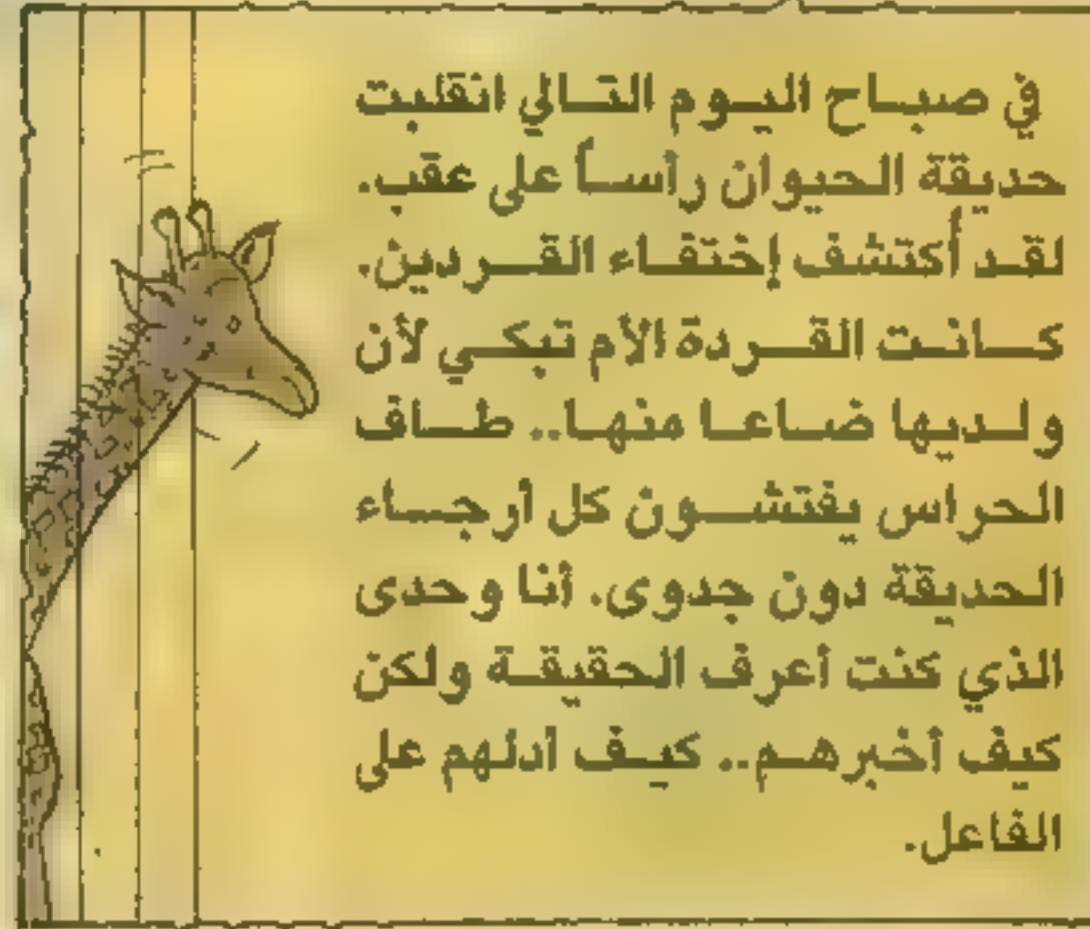 في صباح اليوم التالي انقلبت
حديقة الحيوان رأساً على عقب.
لقد أكتشف إختفاء القردين.
كانت القردة الأم تبكي لأن
ولديها ضاعا منها.. طاف
الحراس يفتشون كل أرجاء
الحديقة دون جدوى. أنا وحدى
الذي كنت أعرف الحقيقة ولكن
كيف أخبرهم.. كيف أدلهم على
الفاعل.